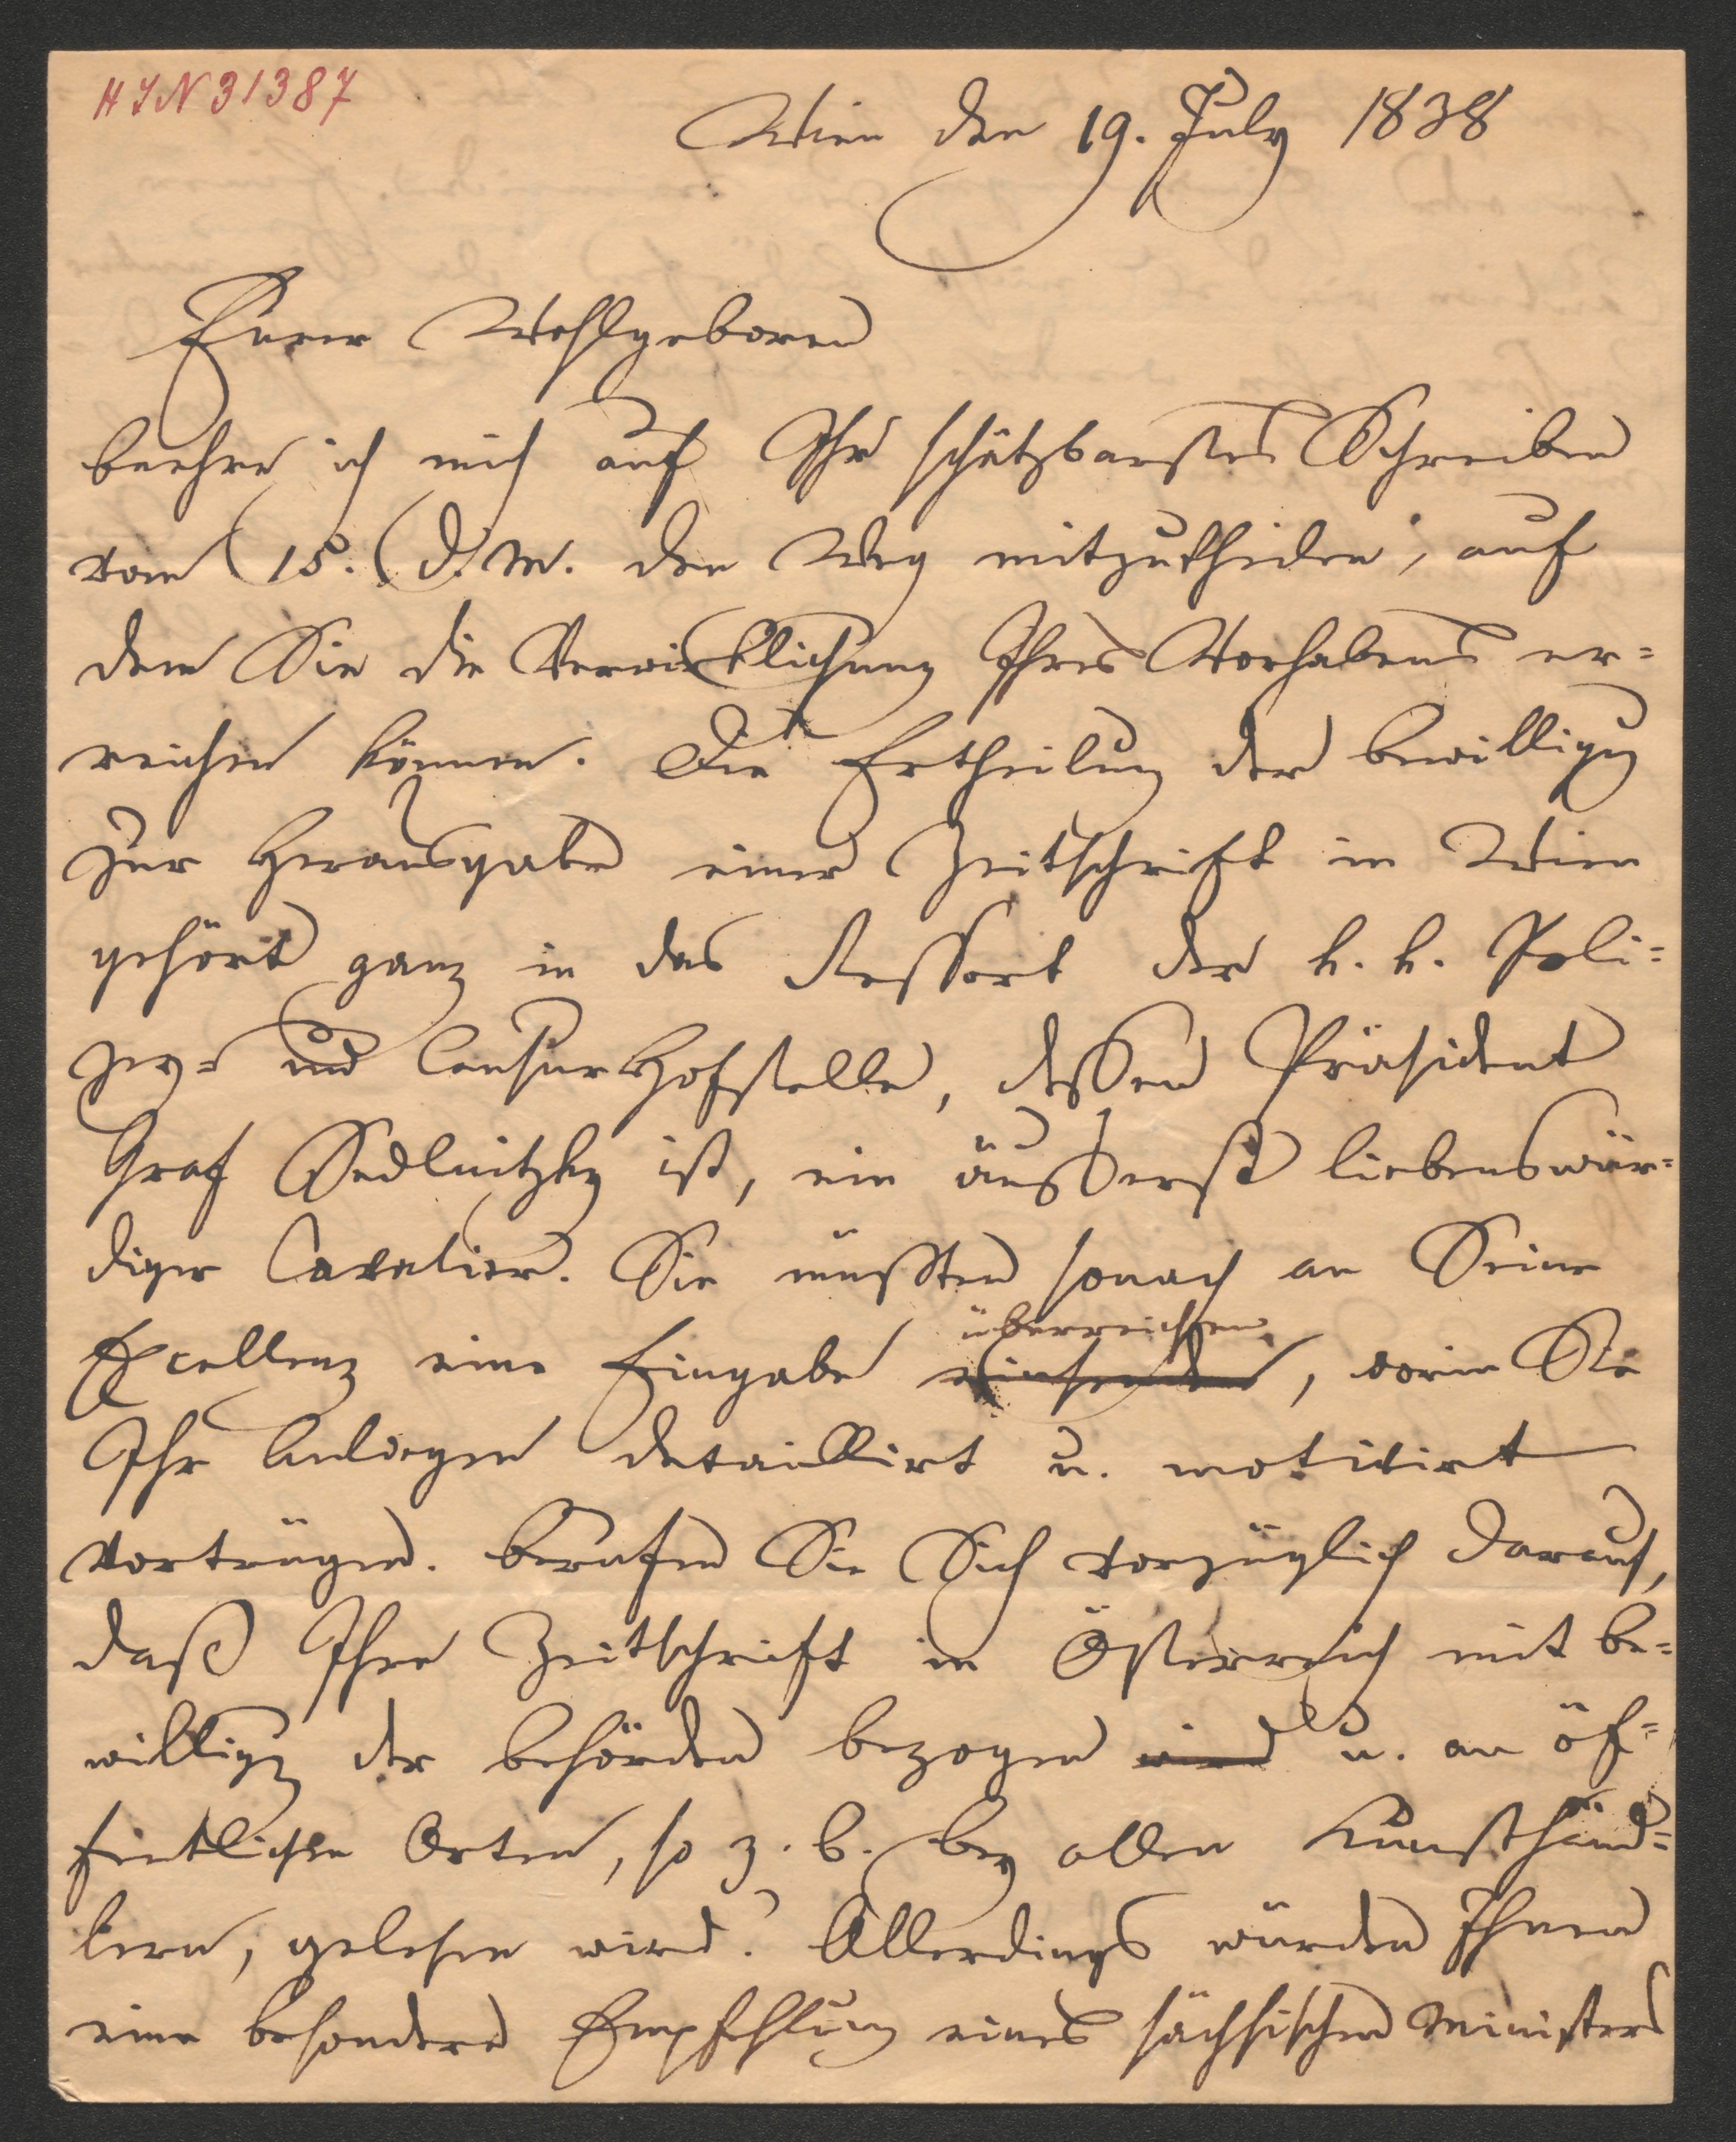 HIN 31387
Wien den 19. July 1838
Euer Wohlgeboren
beehre ich mich auf Ihr schätzbarstes Schreiben
vom 15. d. M. den Weg mitzutheilen, auf
dem Sie die Verwirklichung Ihres Vorhabens er=
reichen können. Die Ertheilung der Bewilligung
zur Herausgabe einer Zeitschrift in Wien
gehört ganz in das Ressort der k. k. Poli=
zey= und Censur Hofstelle, dessen Präsident
Graf Sedlnitzky ist, ein äusserst liebenswür=
diger Cavalier. Sie müssten sonach an Seine
Excellenz eine Eingabe einsenden überreichen, worin Sie
Ihr Anliegen detaillirt u. motivirt
vortrügen. Berufen Sie Sich vorzüglich darauf,
daß Ihre Zeitschrift in Österreich mit Be=
willigung der Behörden bezogen wird u. an öf=
fentlichen Orten, so z. B. bey allen Kunsthänd=
lern, gelesen wird. Allerdings würden Ihnen
eine besondere Empfehlung eines sächsischen Ministers